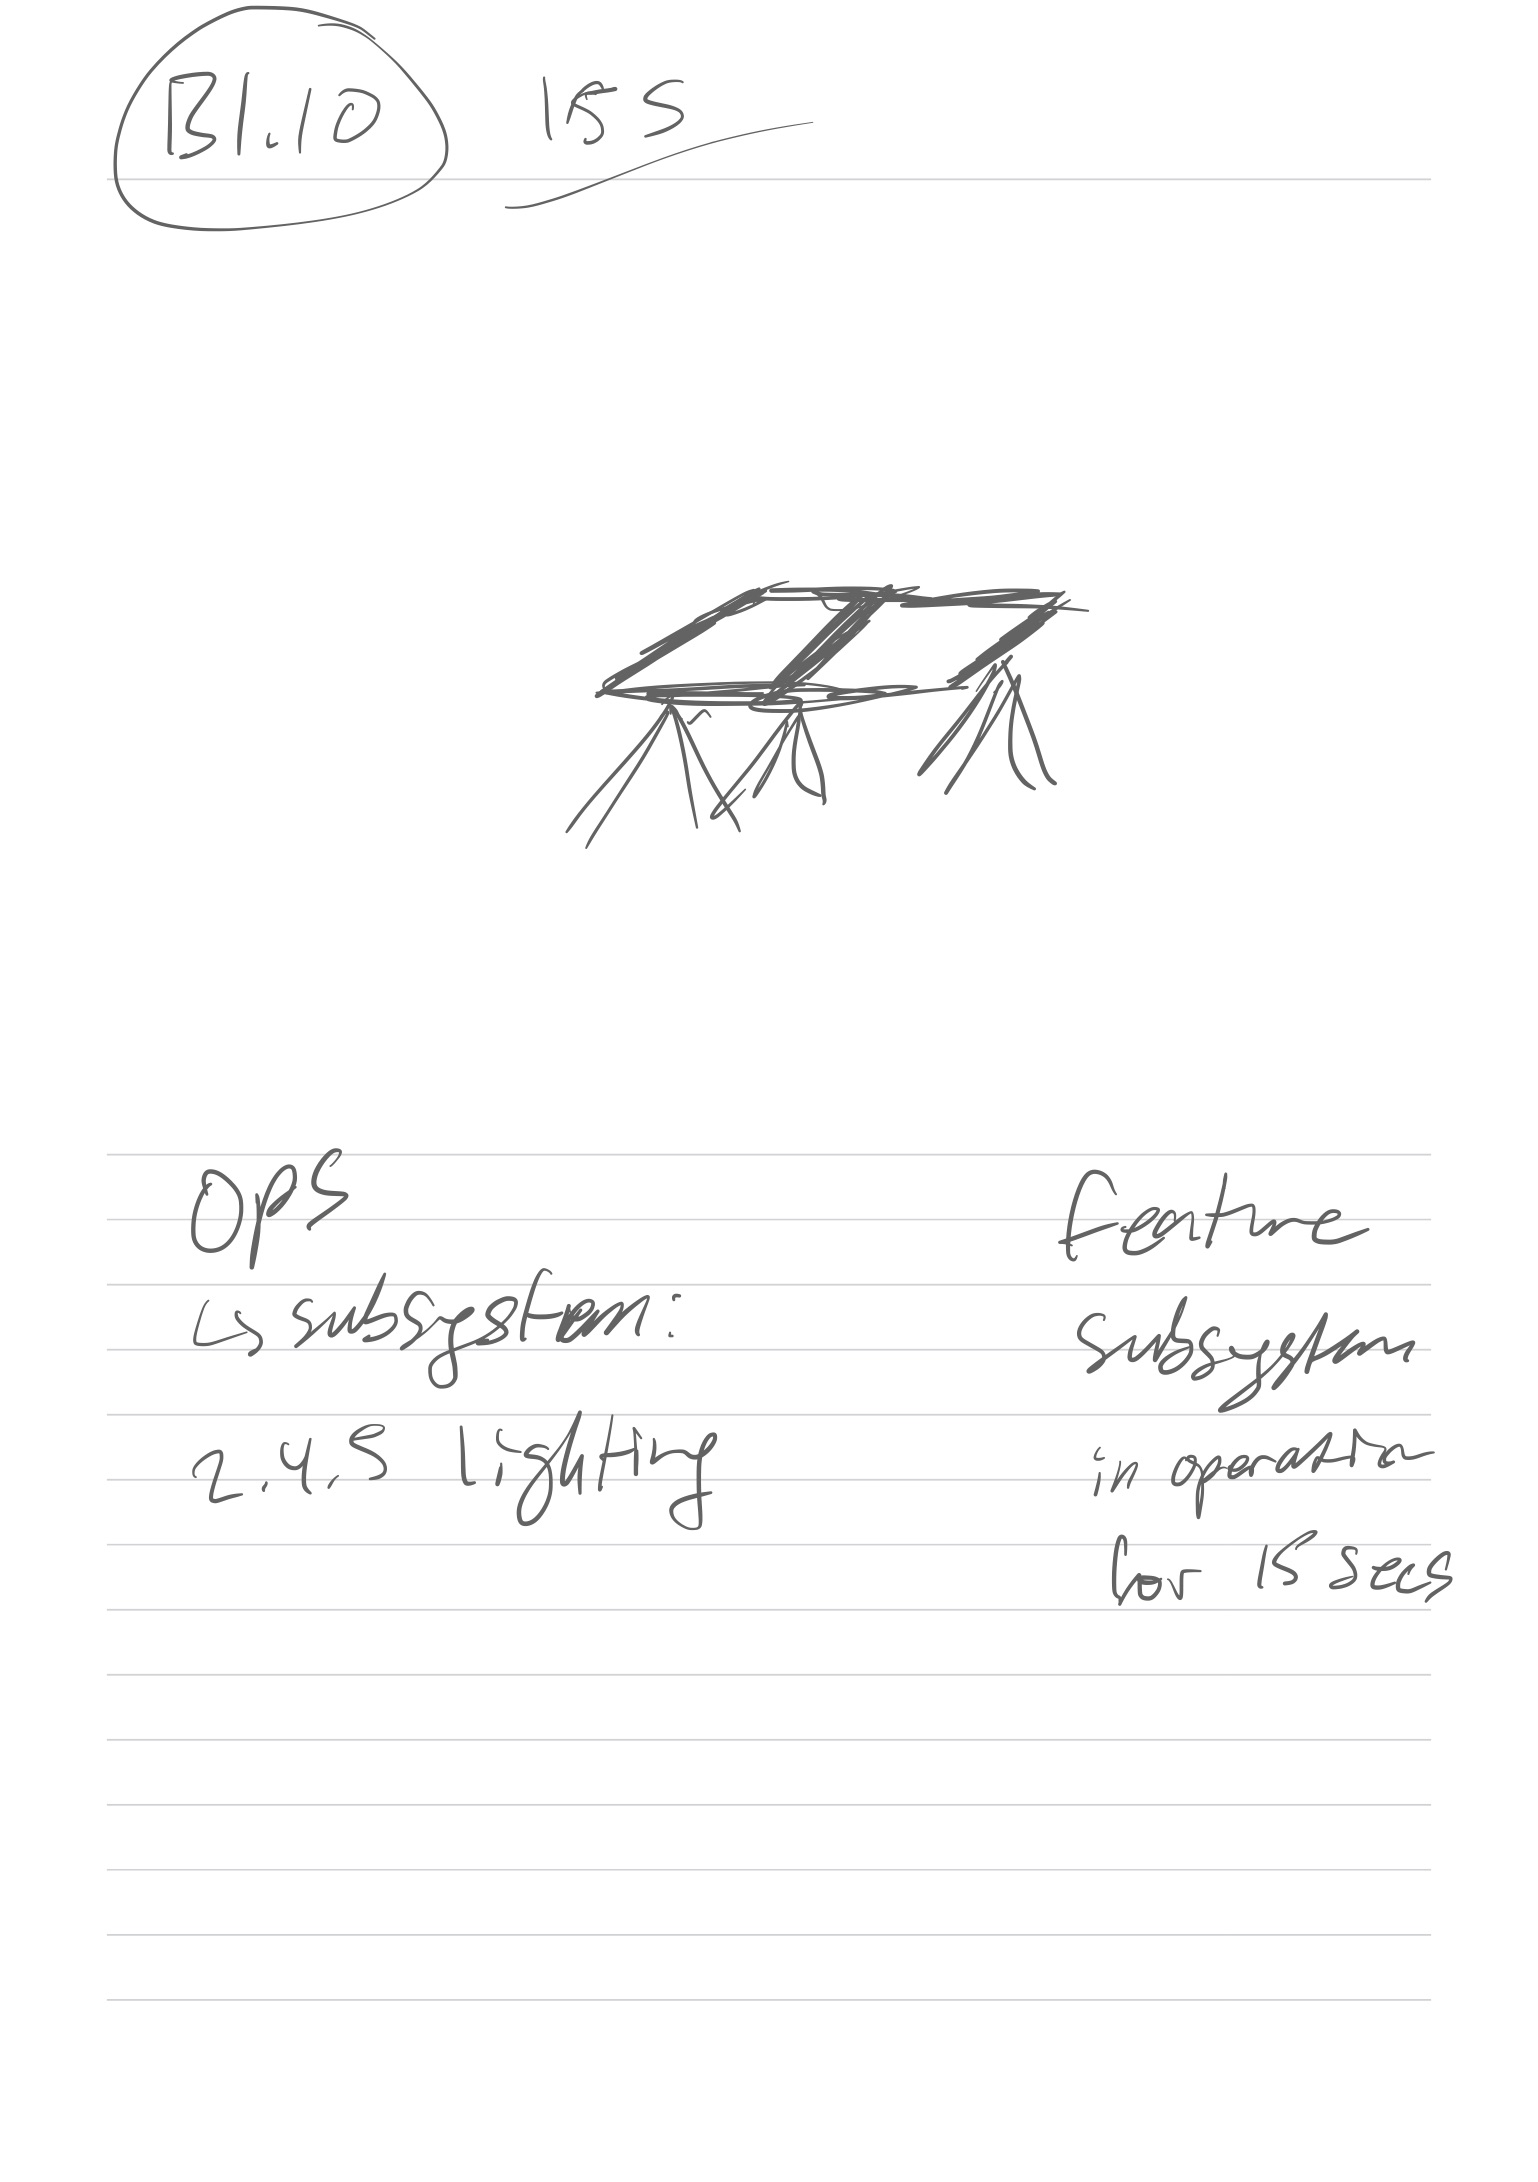 B1.10 15 S
OPS
↳ subsystem:
2.4.5 lighting
Feature
subsystem
in operation
for 15 secs